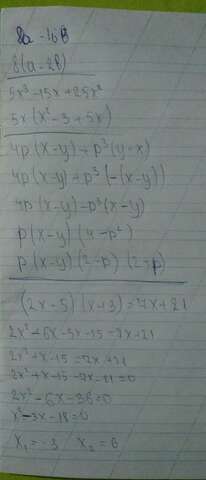 8a - 16b
8(a - 2b)
5x³ - 15x + 25x²
5x(x² - 3 + 5x)
4p(x-y) + p³(y-x)
4p(x-y) + p³(-(x-y))
4p(x-y) - p³(x-y)
p(x-y)(4-p²)
p(x-y)(2-p)(2+p)
(2x-5)(x+3) = 7x+21
2x²+6x-5x-15=7x+21
2x²+x-15=7x+21
2x²+x-15-7x-21=0
2x²-6x-36=0
x²-3x-18=0
x₁=-3 x₂=6